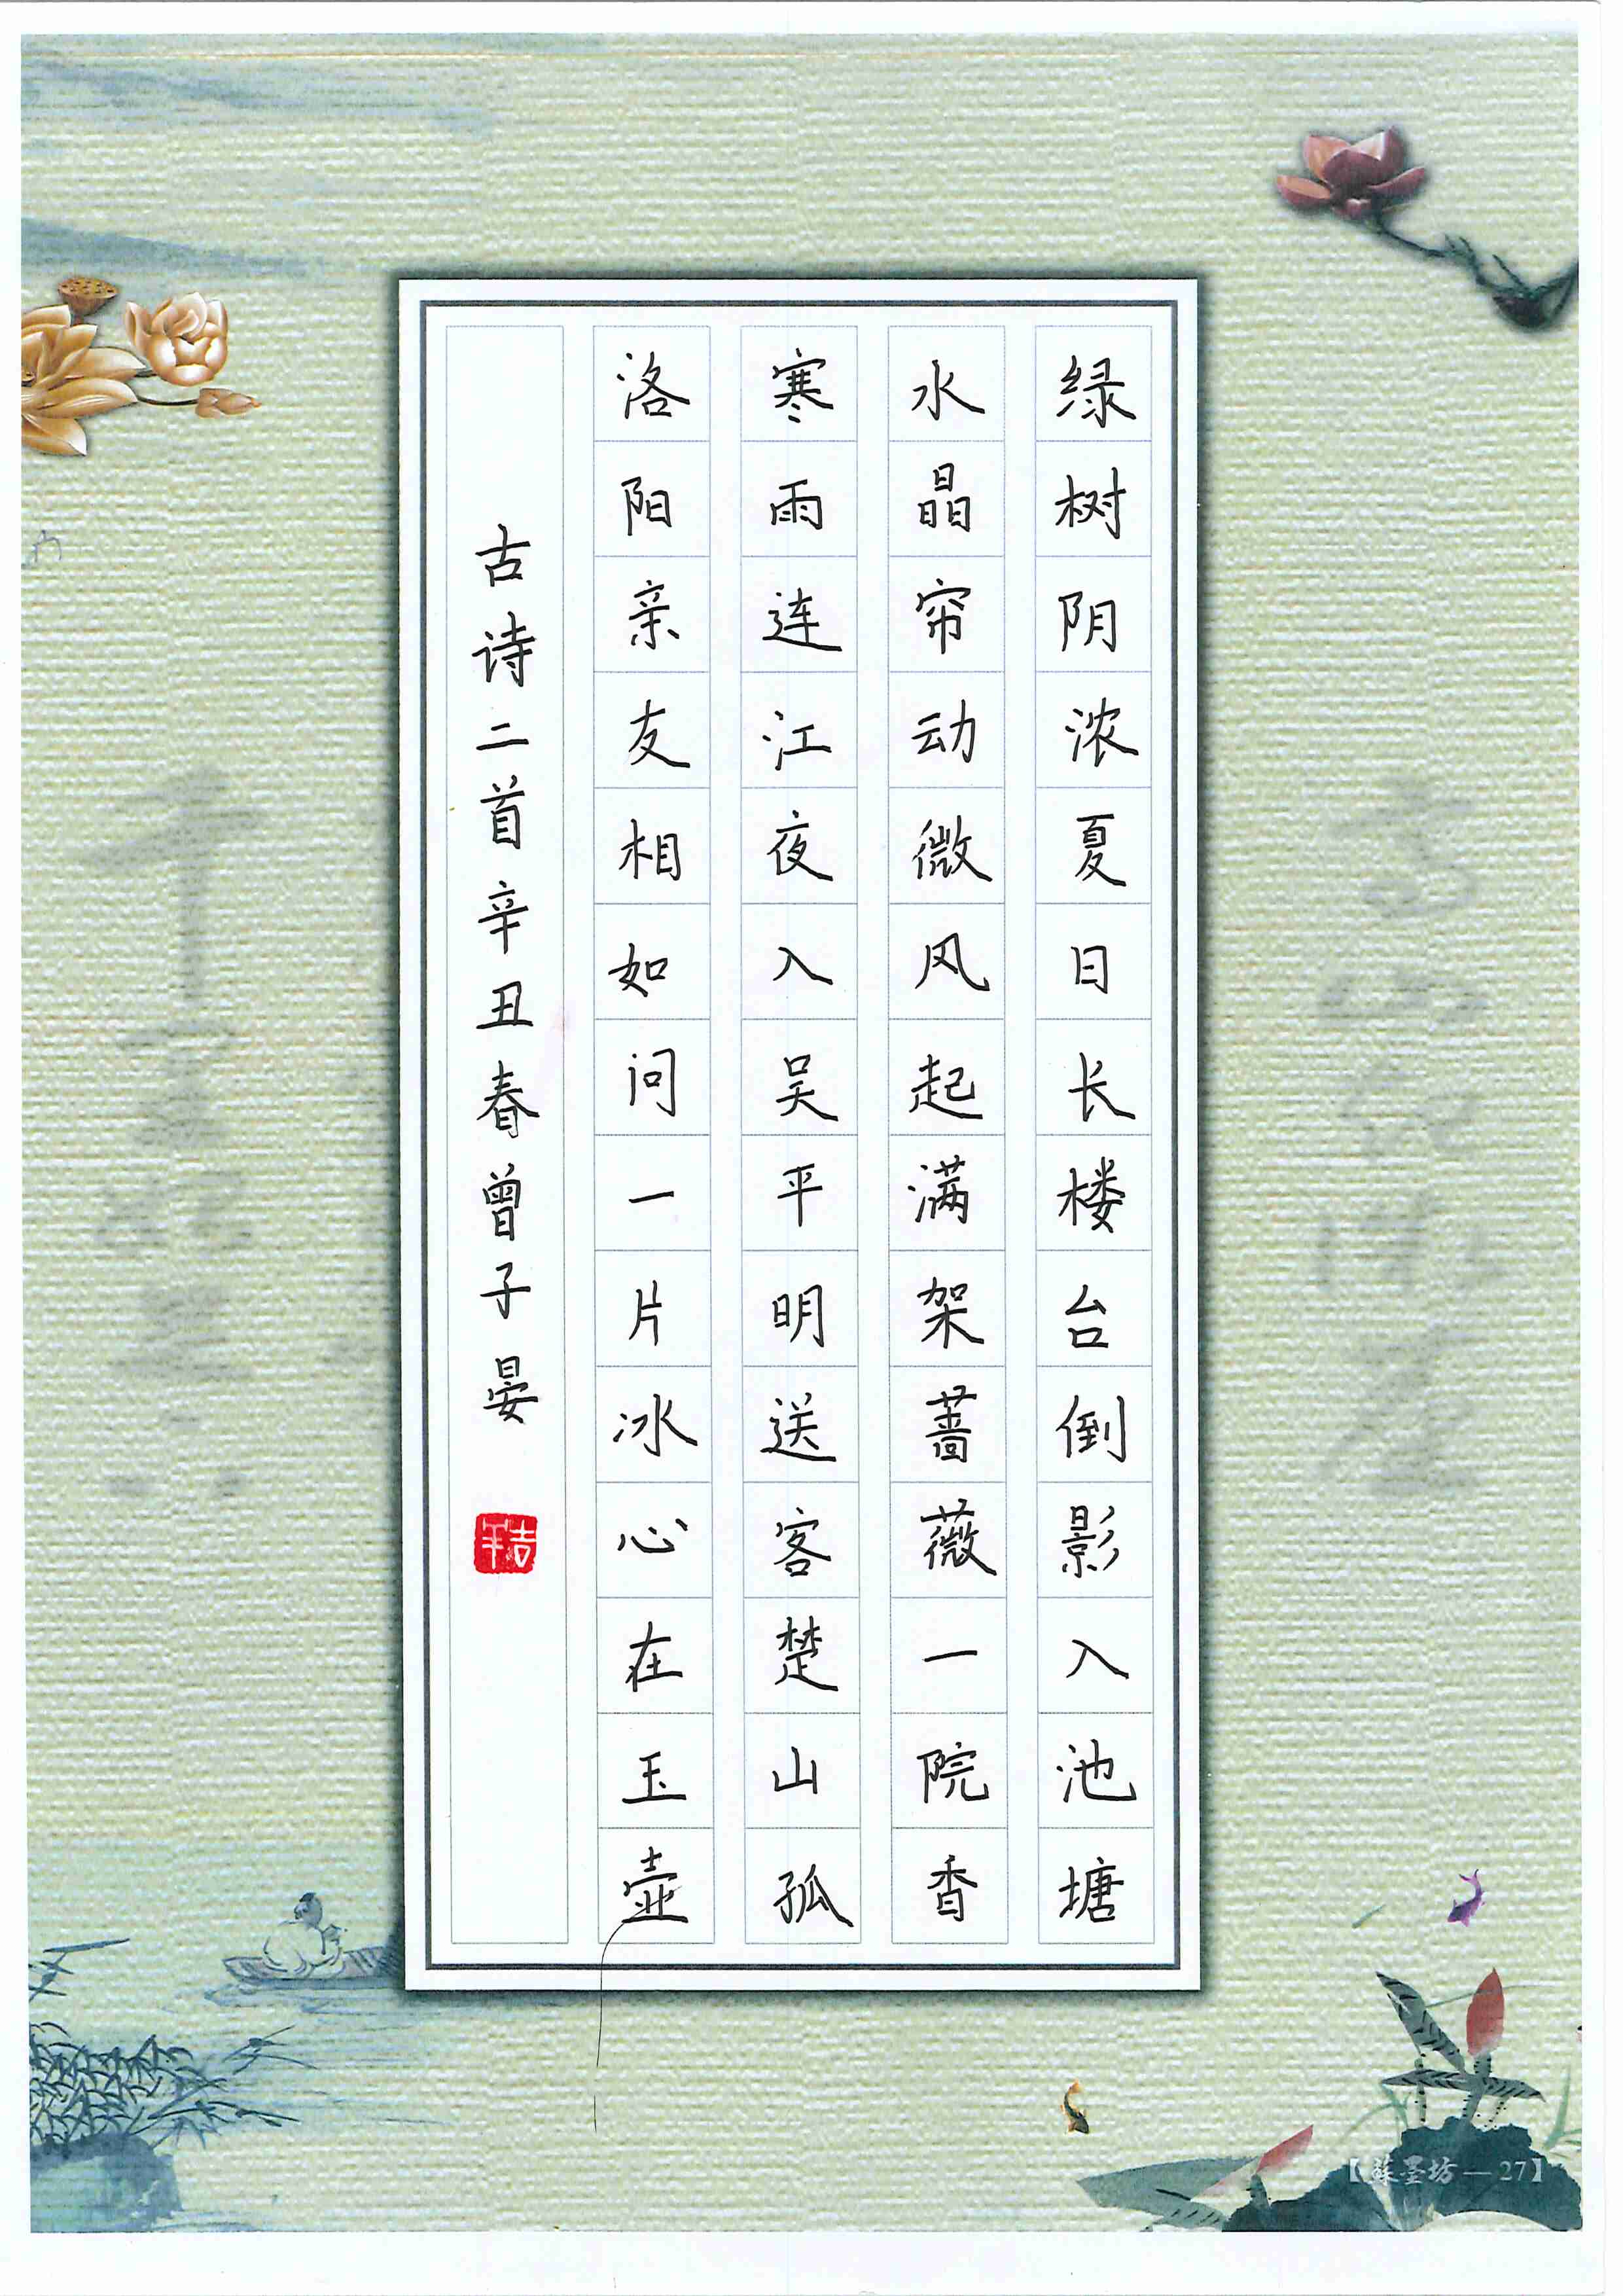 绿树阴浓夏日长楼台倒影入池塘
水晶帘动微风起满架蔷薇一院香
寒雨连江夜入吴平明送客楚山孤
洛阳亲友相如问一片冰心在玉壶
古诗二首辛丑春曾子晏
吉祥
【蘇墨坊—27】